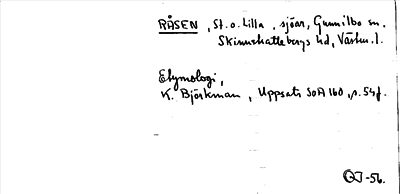 RÅSEN, St. o. Lilla, sjöar, Gunnilbo sn.
Skinnskattebergs hd, Västm. l.
Etymologi,
K. Björkman, Uppsats SOA 160, s. 54 f.
-56.